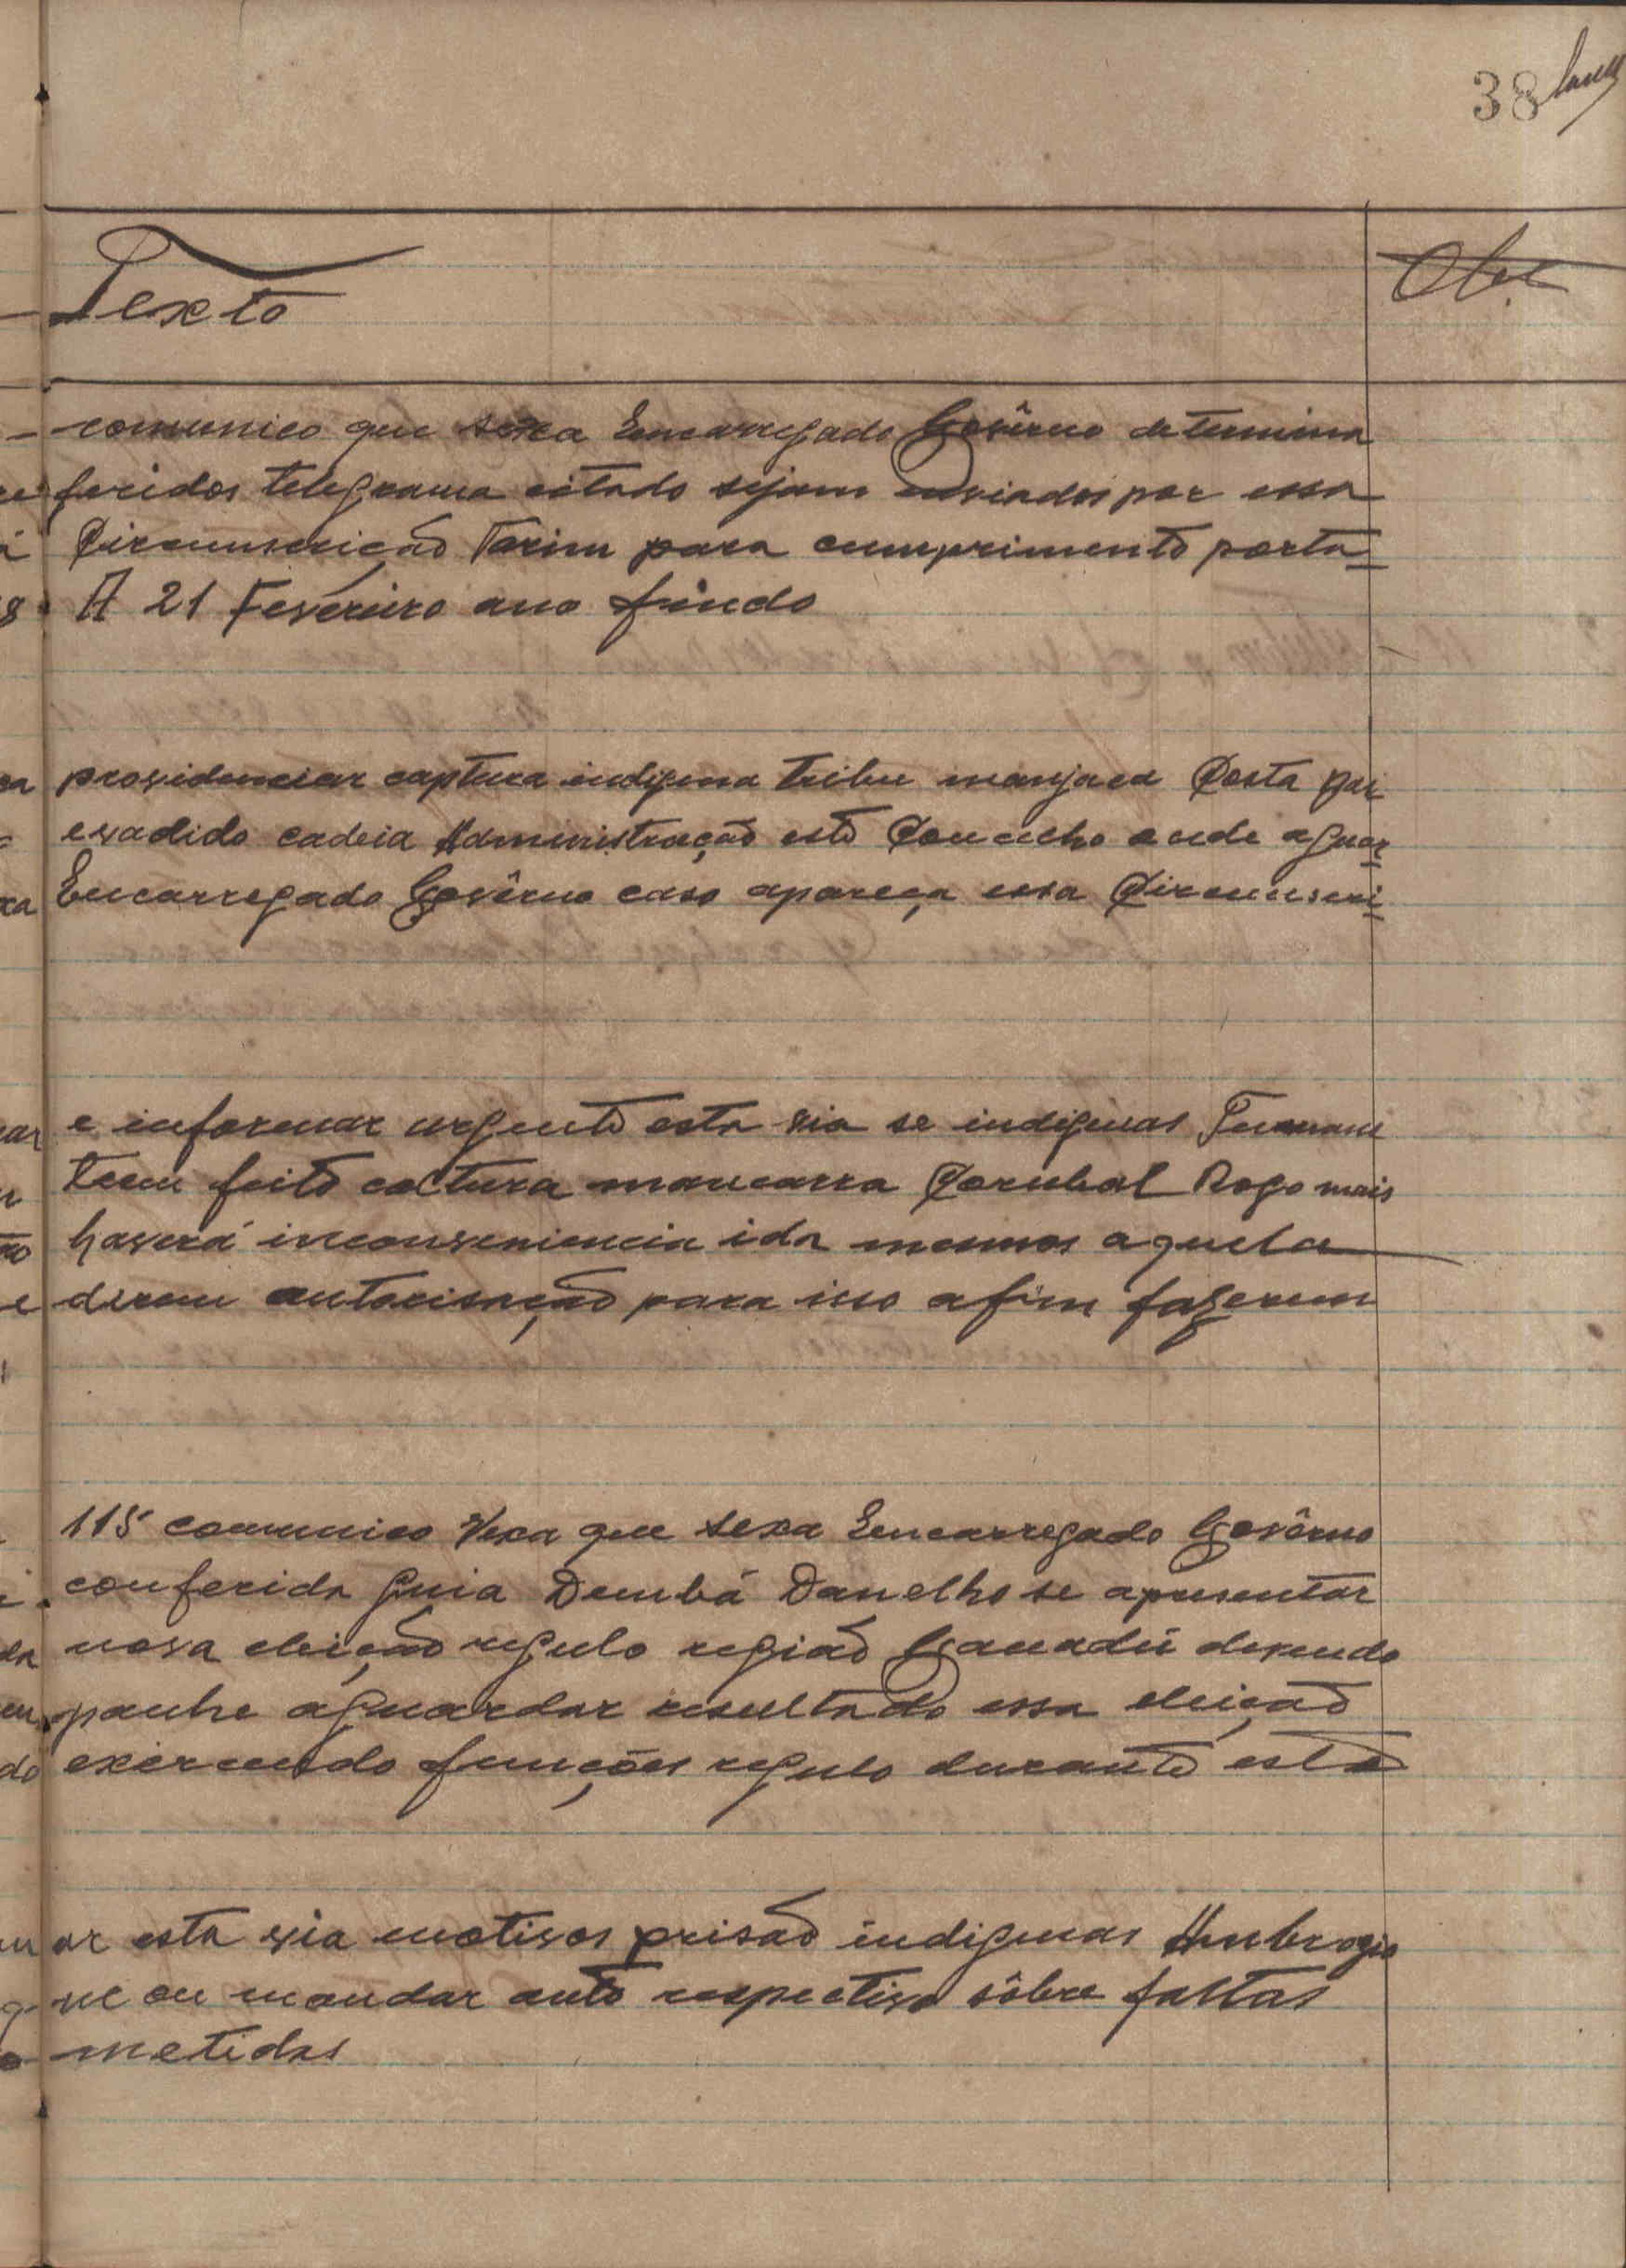 38
Texto
Obs
comunico que sexa Encarregado Govêrno determina
feridos telegrama citado sejam enviados por essa
Circunscrição Farim para cumprimento porta
A 21 Fevereiro ano findo
providenciar captura indigena tribu manjaca Costa
evadido cadeia Administração este Concelho onde aguar
Encarregado Govêrno caso apareça essa Circunscri
e informar urgente esta via se indigenas
teem feito cultura mancarra Corubal Rogo mais
haverá inconveniencia ida mesmos aquela
derem autorisação para isso afim fazerem
115 comunico Vexa que sexa Encarregado Govêrno
conferida guia Dembá Danelho se apresentar
nova eleição regulo região Ganadú devendo
panhe aguardar resultado essa eleição
exercendo funções regulo durante este
ar esta via motivos prisão indigenas Ambrogio
ne ou mandar auto respectivo sôbre faltas
metidas